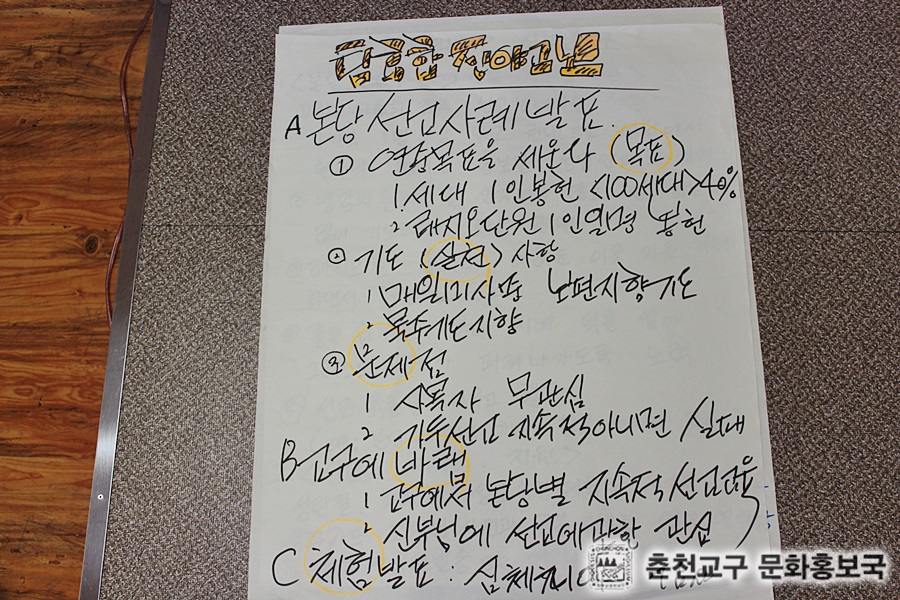 A 본당 선교사례 발표.
① 연중목표을 세운다 (목표)
1. 세대 1인봉헌 <100세대> 40%
2. 레지오단원 1인 열명 봉헌
② 기도 (실천) 사항
1. 매일미사 보편지향기도
2. 묵주기도지향
③ 문제점
1 사목자 무관심
2 가두선교 지속적아니면 실태
B 교구에 바램
1 교구에서 본당별 지속적 선교교육
2 신부님에 선교에과한 관심
C 체험발표 :
춘천교구 문화홍보국